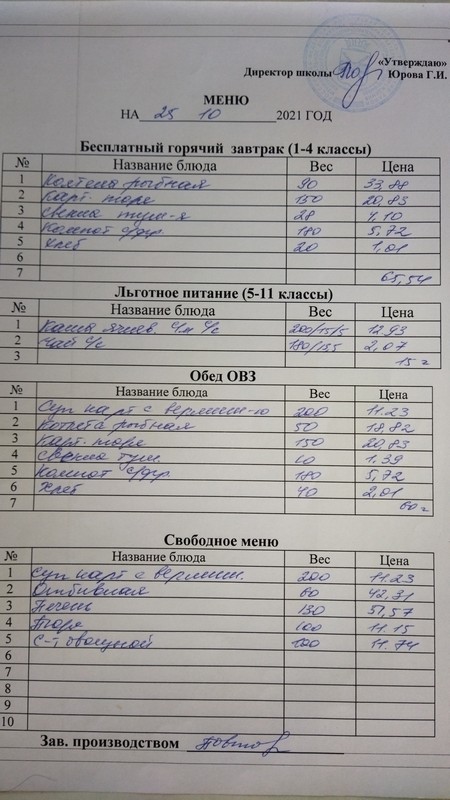 «Утверждаю»
Директор школы Юрова Г.И.
МЕНЮ
НА 25 10 2021 ГОД
Бесплатный горячий завтрак (1-4 классы)
№ Название блюда Вес Цена
1 Котлета рыбная 90 33,88
2 Карт. пюре 150 20,83
3 свекла туш-я 28 4,10
4 Компот с/фр. 180 5,72
5 Хлеб 20 1,01
6
7 65,54
Льготное питание (5-11 классы)
№ Название блюда Вес Цена
1 Каша ячнев. с/м с/с 200/15/5 12,93
2 Чай с/с 180/13,5 2,07
3 15 г
Обед ОВЗ
№ Название блюда Вес Цена
1 Суп карт с вермиш-ю 200 11.23
2 Котлета рыбная 50 18,82
3 Карт. пюре 150 20,83
4 Свекла туш. 10 1,39
5 Компот с/фр. 180 5,72
6 Хлеб 40 2,01
7 60 г
Свободное меню
№ Название блюда Вес Цена
1 Суп карт с вермиш. 200 11.23
2 Отбивная 60 42,31
3 Печень 130 51,57
4 Пюре 100 11.15
5 С-т овощной 100 11.74
6
7
8
9
10
Зав. производством